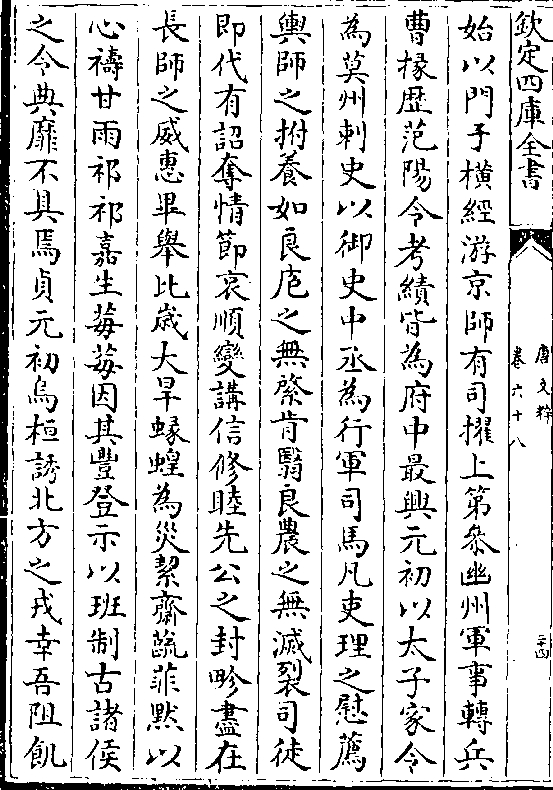 欽定四庫全書
唐文粹
卷六十八
二十四
始以門子橫經游京師有司擢上第叅幽州軍事轉兵
曹掾歴范陽令考績皆為府中最興元初以太子家令
為莫州刺史以御史中丞為行軍司馬凡吏理之慰薦
輿師之拊養如良庖之無綮肯翳良農之無滅裂司徒
即代有詔奪情節哀順變講信修睦先公之封畛盡在
長師之威惠畢舉比歲大旱蝝蝗為災絜齋蔬菲黙以
心禱甘雨祁祁嘉生莓莓因其豐登示以班制古諸侯
之令典靡不具焉貞元初烏桓誘北方之戎幸吾阻飢